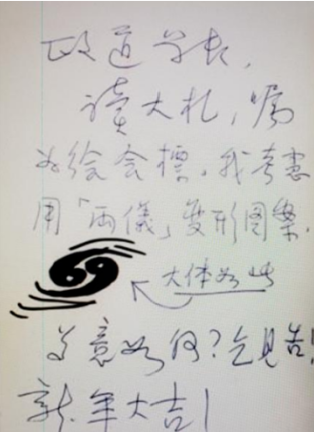 政道学长,
读大札,嘱
为绘会标,我考虑
用「両儀」变形图案.
大体如此
尊意如何?乞见告!
新年大吉!